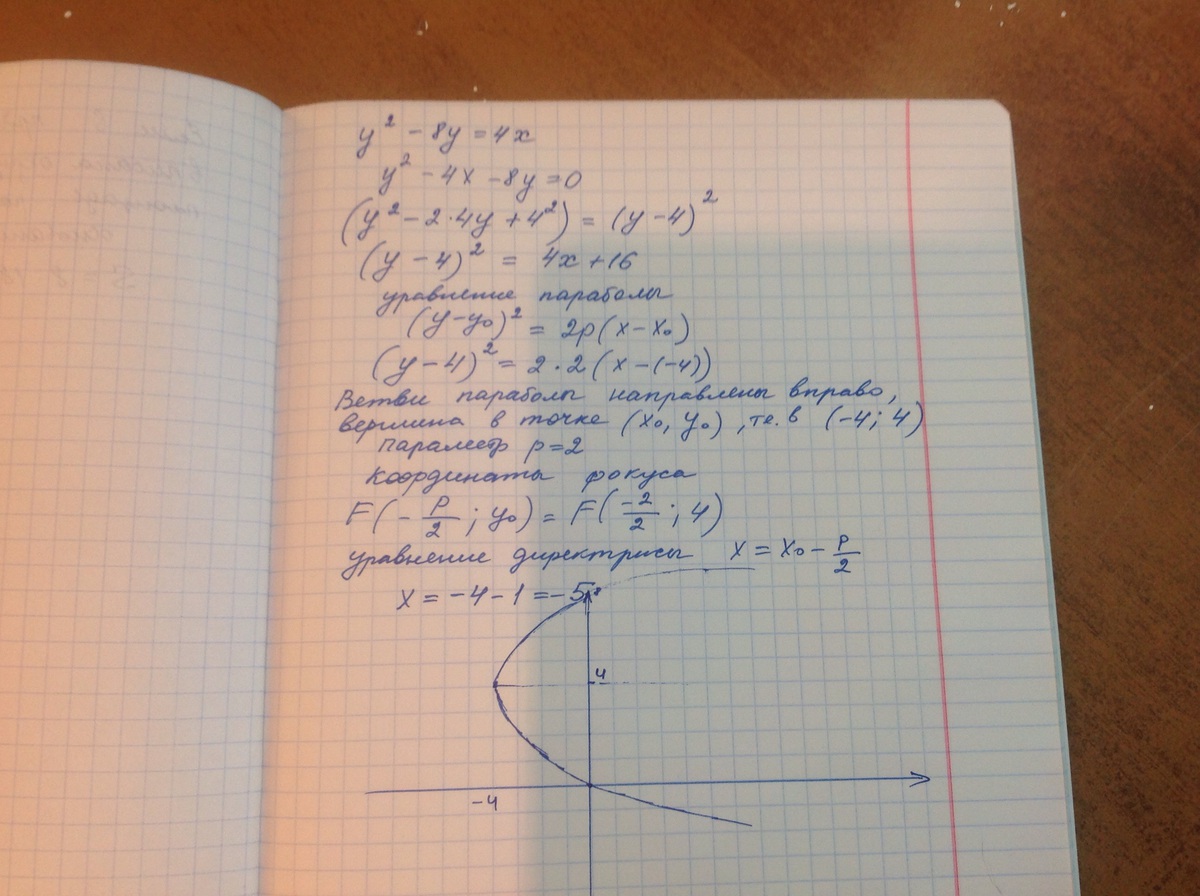 y² - 8y = 4x
y² - 4x - 8y = 0
(y² - 2·4y + 4²) = (y - 4)²
(y - 4)² = 4x + 16
уравнение параболы
(y - y₀)² = 2p(x - x₀)
(y - 4)² = 2·2(x - (-4))
Ветви параболы направлены вправо,
вершина в точке (x₀, y₀), т.е. в (-4; 4)
параметр p = 2
Координаты фокуса
F(-p/2; y₀) = F(-2/2; 4)
уравнение директрисы x = x₀ - p/2
x = -4 - 1 = -5
4
-4